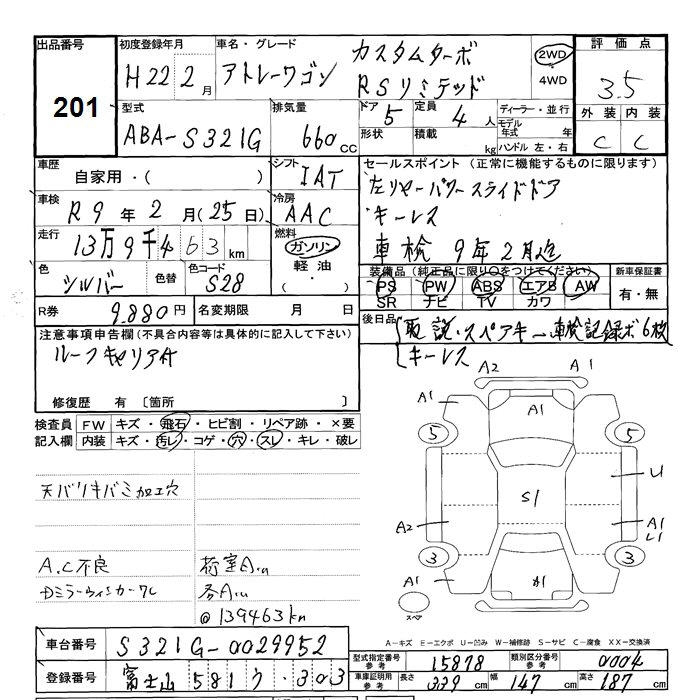 出品番号
201
初度登録年月
H22 2月
車名・グレード
アトレーワゴン
カスタムターボ
RSリミテッド
2WD
4WD
評価点
3.5
外装 内装
C C
型式
ABA-S321G
排気量
660cc
ドア 5
形状
定員 4人
積載 kg
ディーラー・並行
モデル年式 年
ハンドル 左・右
車歴
自家用・( )
シフト
IAT
車検
R9年2月(25日)
冷房
AAC
走行
13万9千463km
燃料
ガソリン
軽油・
( )
色
シルバー
色替
色コード
S28
R券
9.880円
名変期限 月 日
セールスポイント (正常に機能するものに限ります)
左リヤーパワースライドドア
キーレス
車検 9年2月迄
装備品 (純正品に限り○をつけてください)
PS PW ABS エアB AW
SR ナビ TV カワ
新車保証書
有・無
後日品
取説・スペアキー 車検記録ボ6枚
キーレス
注意事項申告欄(不具合内容等は具体的に記入して下さい)
ルーフキャリアA
修復歴 有 〔箇所 〕
検査員記入欄
FW キズ・飛石・ヒビ割・リペア跡・×要
内装 キズ・汚レ・コゲ・穴・スレ・キレ・破レ
天バリキバミ加工穴
A.C不良
Dミラーウィンカーワレ
荷室A
各A
@139463km
A2 A1
A1 A1
5 5
A1
U
S1
A2
A1
L1
3 3
A1 A1
スペア
A-キズ E-エクボ U-凹み W-補修跡 S-サビ C-腐食 XX-交換済
車台番号
S321G-0029952
登録番号
富士山 581 ウ・303
型式指定番号 参考
15878
類別区分番号 参考
0004
車庫証明用 参考
長さ 339cm 幅 147cm 高さ 187cm